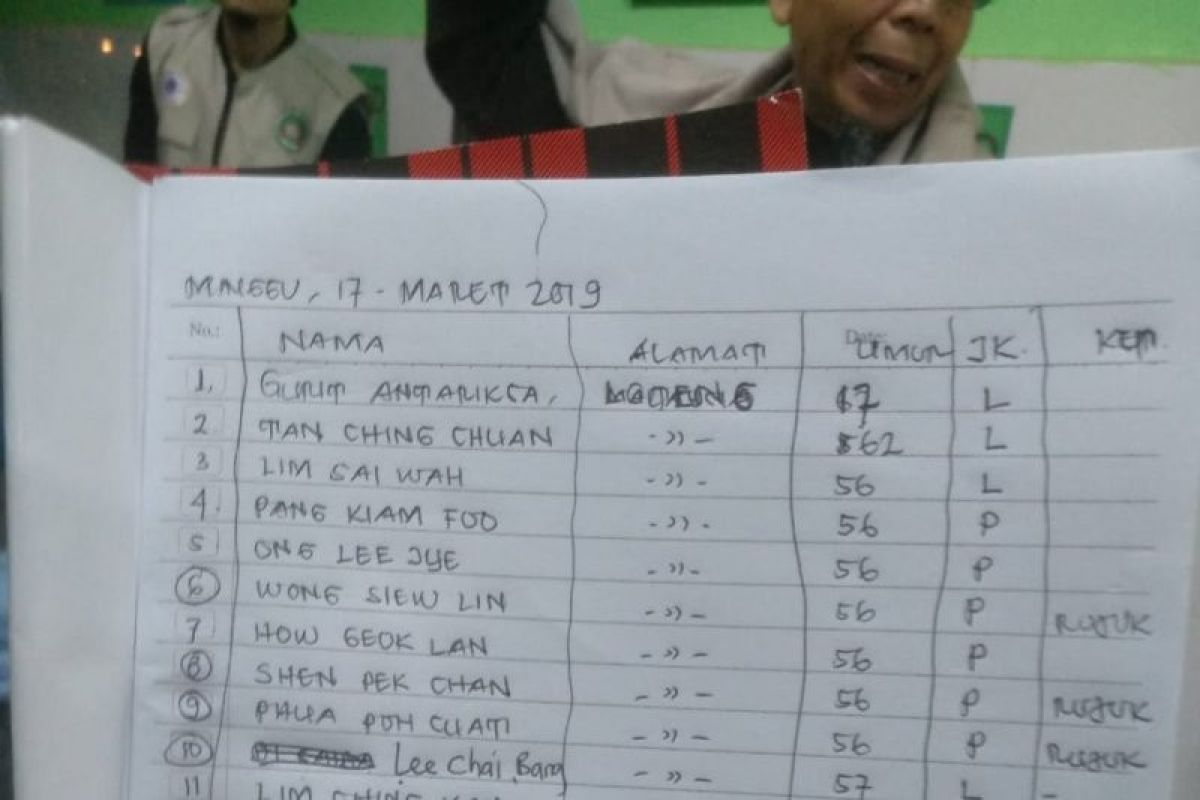 MINGGU, 17 - MARET 2019
No.: NAMA ALAMAT UMUR JK. KET.
1. GURIT ANTARIKSA, 17 L
2 TAN CHING CHUAN - )) - 62 L
3 LIM SAI WAH - )) - 56 L
4. PANG KIAM FOO - )) - 56 P
5 ONG LEE JYE - )) - 56 P
6 WONG SIEW LIN - )) - 56 P RUJUK
7 HOW GEOK LAN - )) - 56 P
8 SHEN PEK CHAN - )) - 56 P RUJUK
9 PHUA POH CUAT - )) - 56 P RUJUK
10 Lee Chai Bang - )) - 57 L -
11 LIM CHING